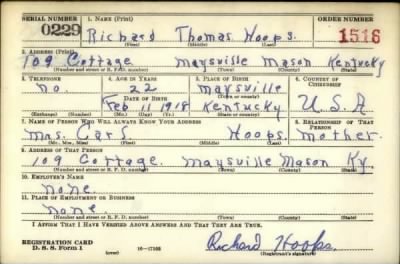 SERIAL NUMBER 1. NAME (Print) ORDER NUMBER
0229 Richard Thomas Hoops. 1516
(First) (Middle) (Last)
2. ADDRESS (Print)
109 Cottage Maysville Mason Kentucky
(Number and street or R. F. D. number) (Town) (County) (State)
3. TELEPHONE 4. AGE IN YEARS 5. PLACE OF BIRTH 6. COUNTRY OF CITIZENSHIP
no. 22 Maysville
DATE OF BIRTH (Town or county)
Feb 11 1918 Kentucky U.S.A
(Exchange) (Number) (Mo.) (Day) (Yr.) (State or country)
7. NAME OF PERSON WHO WILL ALWAYS KNOW YOUR ADDRESS 8. RELATIONSHIP OF THAT PERSON
Mrs. Carl Hoops. Mother.
(Mr., Mrs., Miss) (First) (Middle) (Last)
9. ADDRESS OF THAT PERSON
109 Cottage. Maysville Mason Ky.
(Number and street or R. F. D. number) (Town) (County) (State)
10. EMPLOYER'S NAME
none.
11. PLACE OF EMPLOYMENT OR BUSINESS
none.
(Number and street or R. F. D. number) (Town) (County) (State)
I AFFIRM THAT I HAVE VERIFIED ABOVE ANSWERS AND THAT THEY ARE TRUE.
REGISTRATION CARD
D. S. S. Form 1 (over) 16—17105 Richard Hoops.
(Registrant's signature)